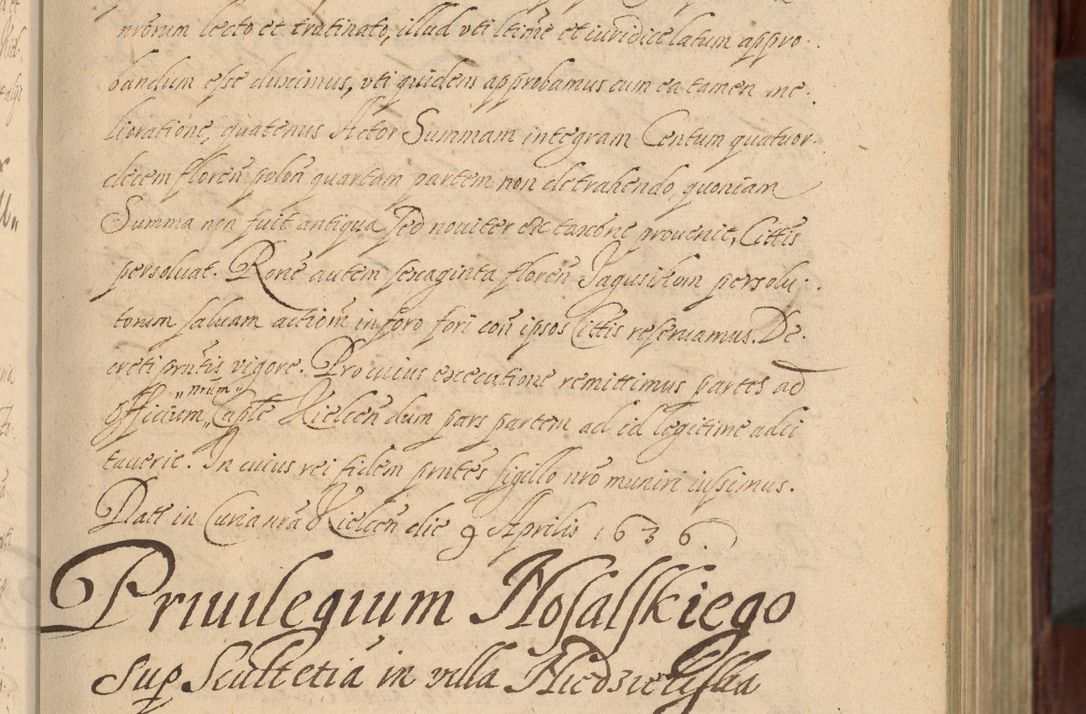 nrõrum lecto et trutinato, illud uti ltime et iuridice latum appro-
bandum esse duximus, uti quidem approbamus cum ea tamen me-
lioratione, quatenus Actor Summam integram Centum quatuor
decem floren̄ polon̄ quartam partem non detrahendo, quoniam
Summa non fuit antiqua sed noviter ex taxõne prouenit, Cittis
persoluat. Rone autem sexaginta floren̄ persolu-
torum saluam actiom in foro fori con̄ ipsos Cittis reseruamus. De-
creti pn̄tis vigore. Pro cuius executione remittimus partes ad
Officium nrum Capłe Kielcen̄ dum pars partem ad id legitime adci
tauerit. In cuius rei fidem pn̄tes sigillo nro muniri iussimus.
Datt in Curia nrã Kielcen̄ die 9 Aprilis 1636.
Priuilegium Nosalskiego
sup Scultetiã in villa